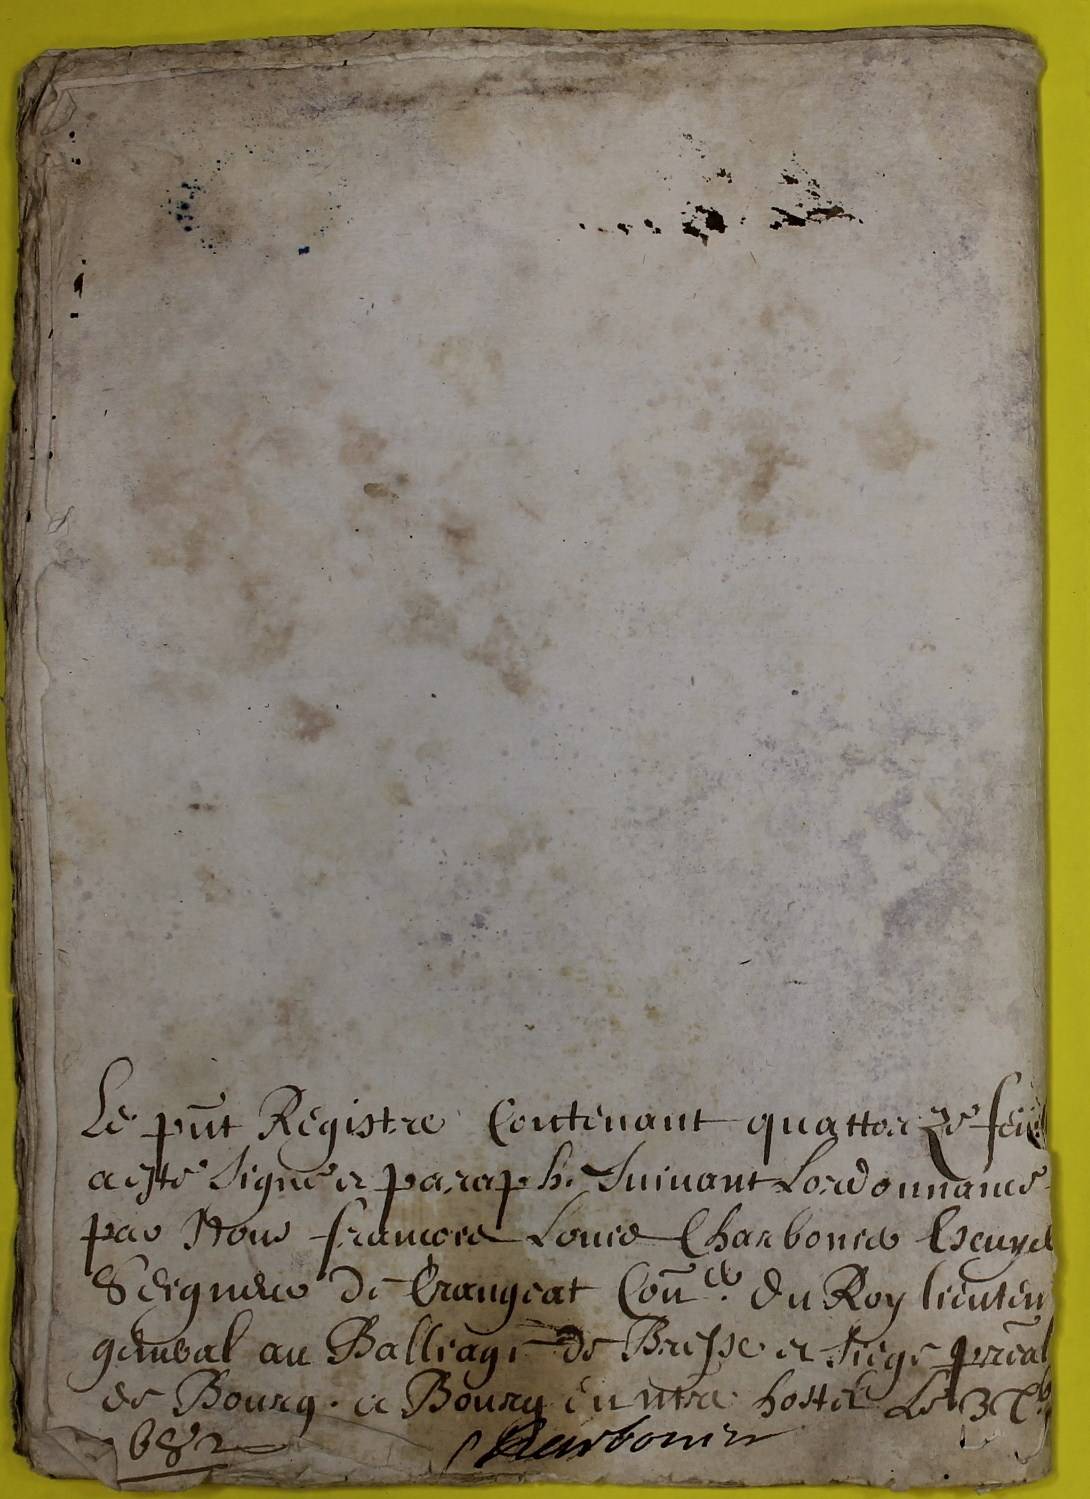 Le pnt Registre Contenant quattorze feu
a esté signé et paraphé suivant Lordonnance
par Nous francois Louis Charbonier Escuyer
Seigneur de Crangeat Coner du Roy lieuten
general au Balliage de Bresse et siege preal
de Bourg. a Bourg en ntre hostel Le 3 Xb
1682
Charbonier